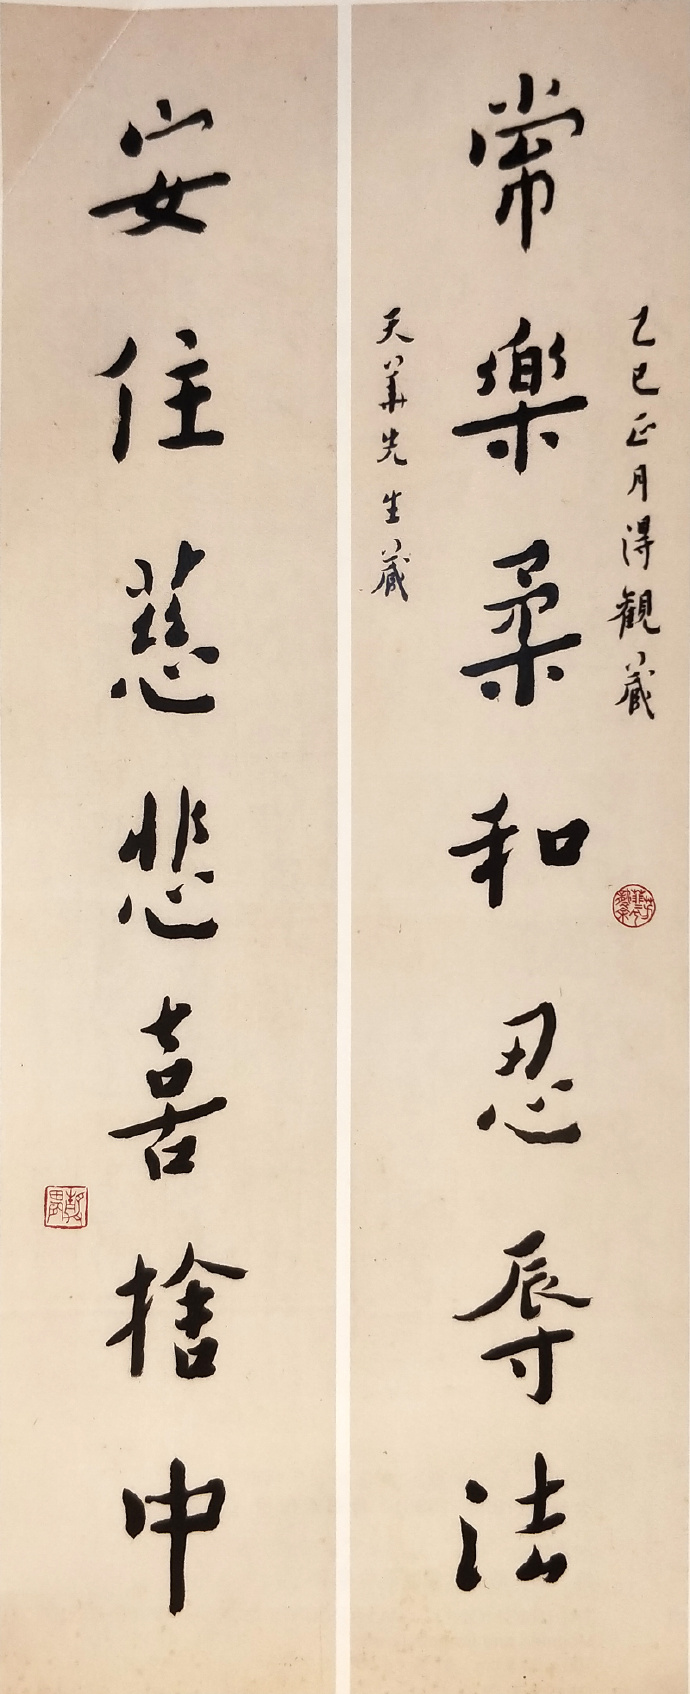 乙巳正月得觀藏
常樂柔和忍辱法
天華先生藏
安住慈悲喜捨中